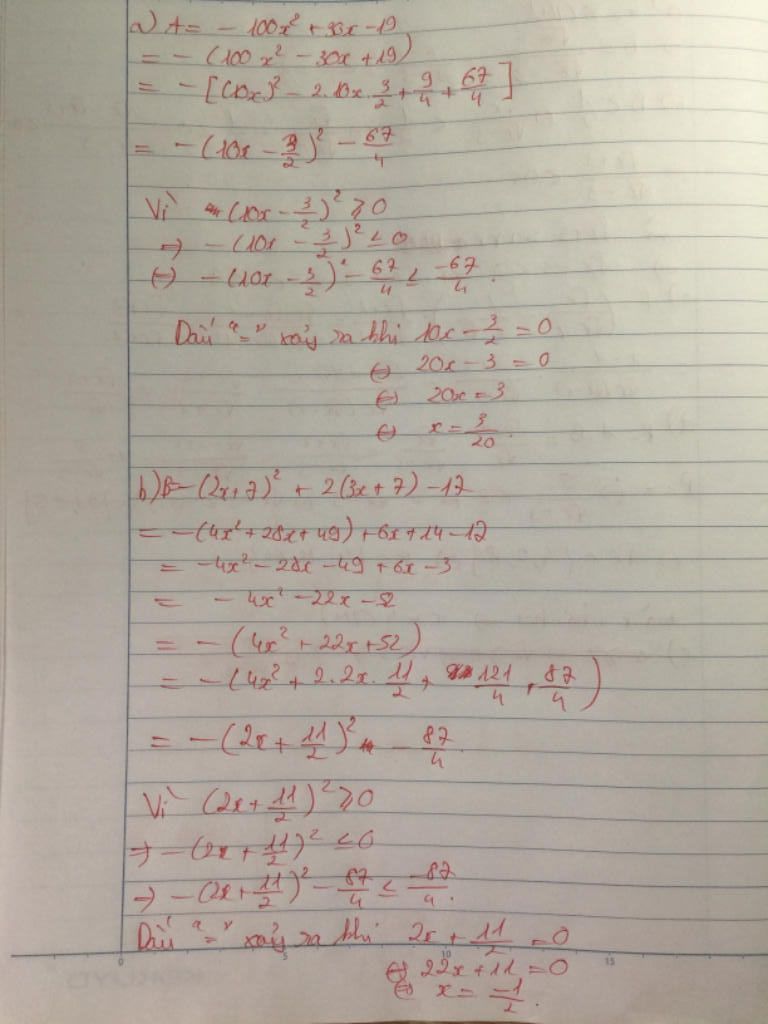 a) A = - 100x² + 30x - 19
= - (100x² - 30x + 19)
= - [(10x)² - 2.10x.3/2 + 9/4 + 67/4]
= - (10x - 3/2)² - 67/4
Vì (10x - 3/2)² ≥ 0
⇒ - (10x - 3/2)² ≤ 0
⇔ - (10x - 3/2)² - 67/4 ≤ -67/4.
Dấu "=" xảy ra khi 10x - 3/2 = 0
⇔ 20x - 3 = 0
⇔ 20x = 3
⇔ x = 3/20.
b) B = - (2x + 7)² + 2(3x + 7) - 17
= - (4x² + 28x + 49) + 6x + 14 - 17
= - 4x² - 28x - 49 + 6x - 3
= - 4x² - 22x - 52
= - (4x² + 22x + 52)
= - (4x² + 2.2x.11/2 + 121/4 + 87/4)
= - (2x + 11/2)² - 87/4.
Vì (2x + 11/2)² ≥ 0
⇒ - (2x + 11/2)² ≤ 0
⇒ - (2x + 11/2)² - 87/4 ≤ -87/4.
Dấu "=" xảy ra khi 2x + 11/2 = 0
⇔ 22x + 11 = 0
⇔ x = -1/2.
0 5 10 15